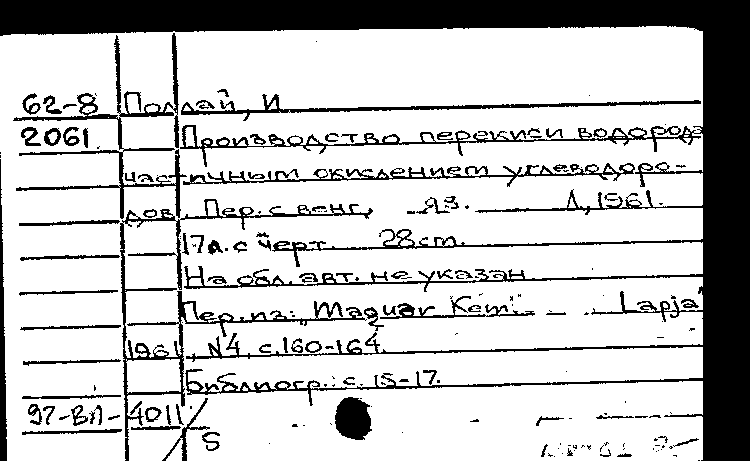 62-8 Поллай, И
2061 Производство перекиси водорода
частичным окислением углеводоро-
дов. Пер. с венг. яз. Л, 1961.
17л. с черт. 28cm.
На обл. авт. не указан
Пер. из: "Magyar Kem. Lapja"
1961, N4, с.160-164.
Библиогр.: с. 15-17.
97-ВЛ-4011
S